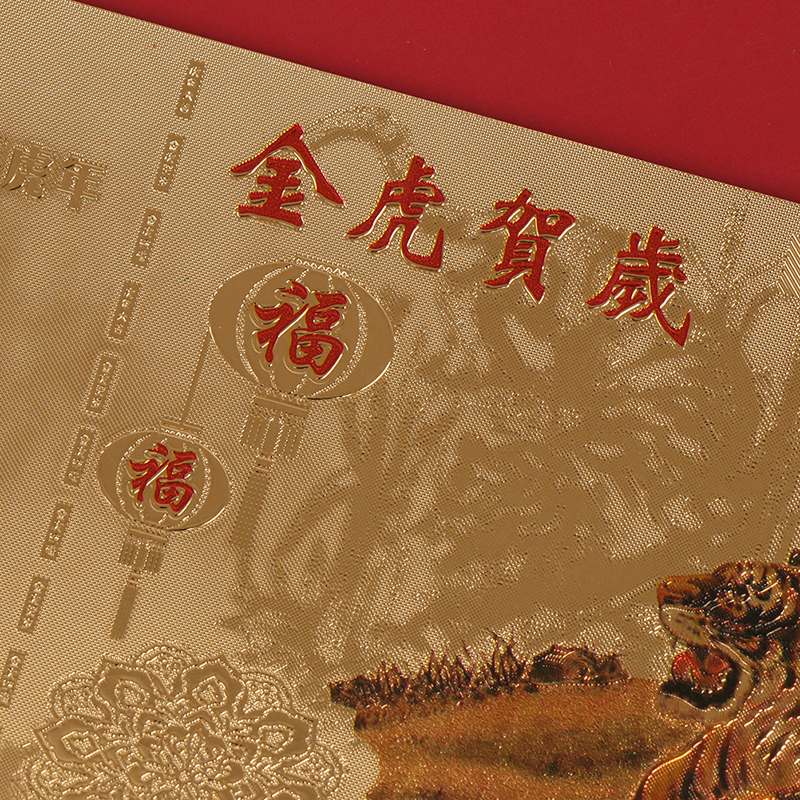 虎年
金虎賀歲
福
福